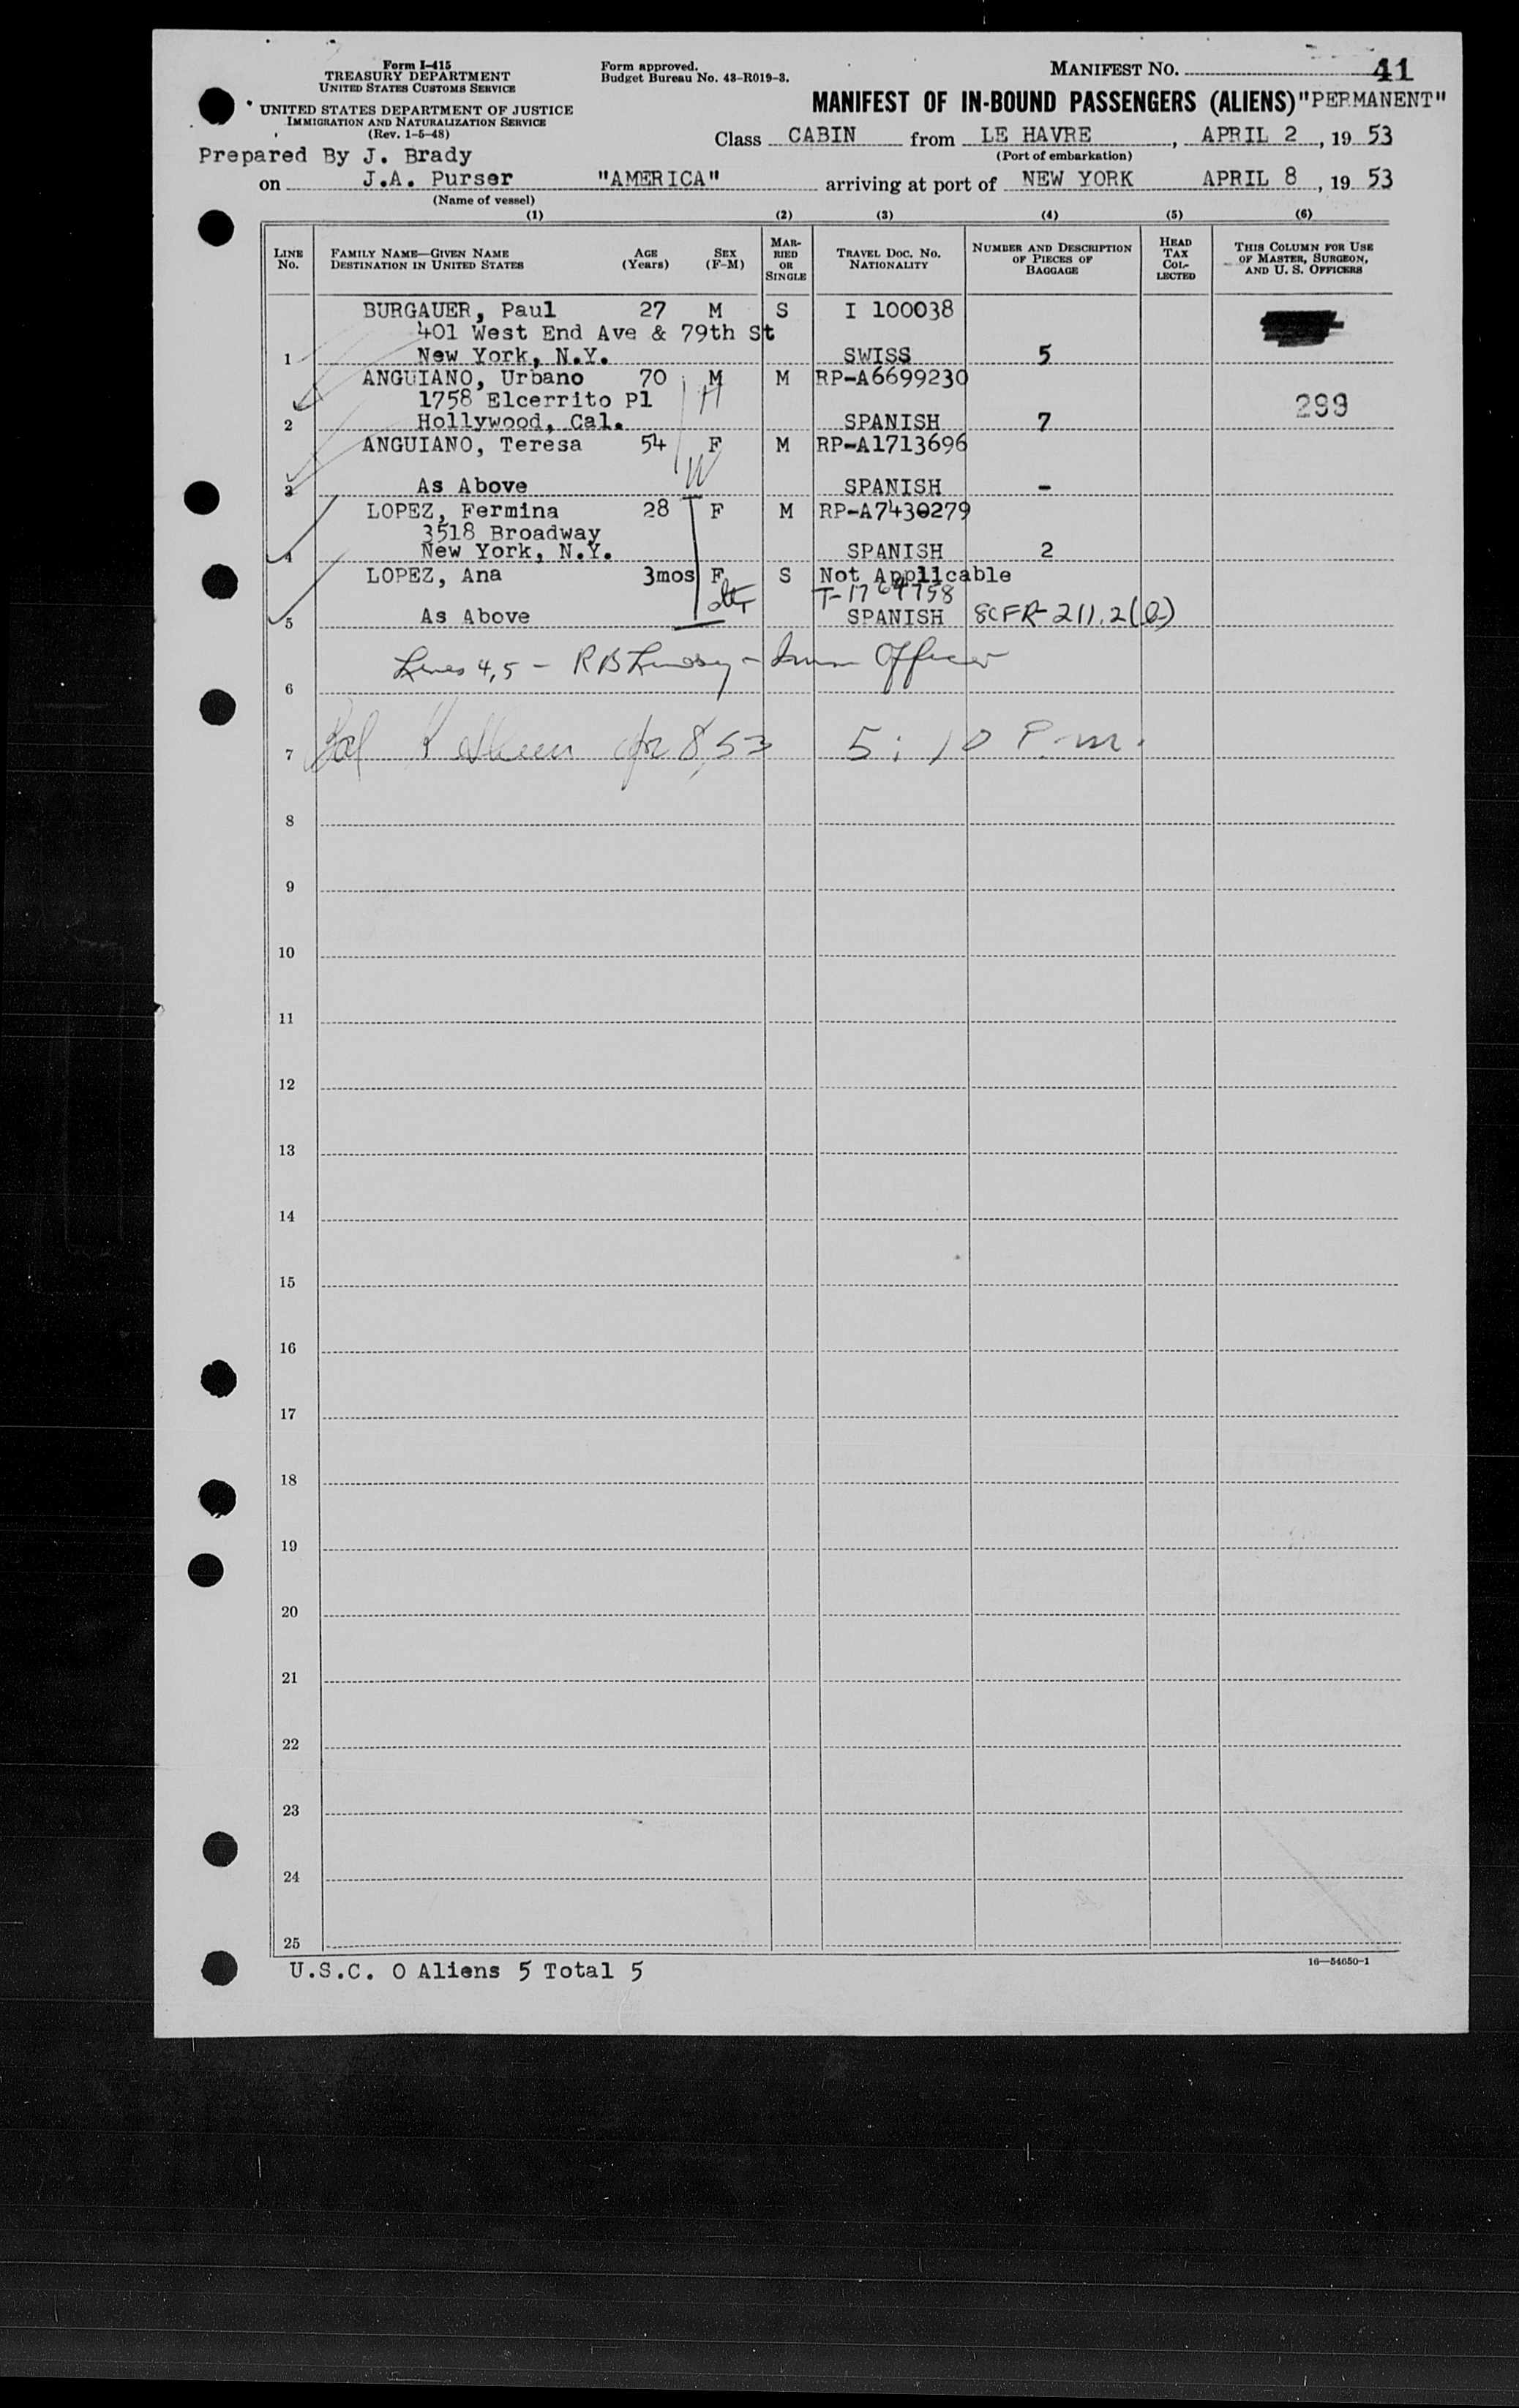 Form I-415
TREASURY DEPARTMENT
UNITED STATES CUSTOMS SERVICE
UNITED STATES DEPARTMENT OF JUSTICE
IMMIGRATION AND NATURALIZATION SERVICE
(Rev. 1-5-48)
Form approved.
Budget Bureau No. 43-R019-3.
MANIFEST NO. 41
MANIFEST OF IN-BOUND PASSENGERS (ALIENS) "PERMANENT"
Class CABIN from LE HAVRE, APRIL 2, 19 53
(Port of embarkation)
Prepared By J. Brady
on J.A. Purser "AMERICA" arriving at port of NEW YORK APRIL 8, 19 53
(Name of vessel)
(1) (2) (3) (4) (5) (6)
LINE No.
FAMILY NAME—GIVEN NAME
DESTINATION IN UNITED STATES
AGE (Years)
SEX (F-M)
MARRIED OR SINGLE
TRAVEL DOC. NO. NATIONALITY
NUMBER AND DESCRIPTION OF PIECES OF BAGGAGE
HEAD TAX COLLECTED
THIS COLUMN FOR USE OF MASTER, SURGEON, AND U. S. OFFICERS
BURGAUER, Paul 27 M S I 100038
401 West End Ave & 79th St
1 New York, N.Y. SWISS 5
ANGUIANO, Urbano 70 M M RP-A6699230
H
1758 Elcerrito Pl 299
2 Hollywood, Cal. SPANISH 7
ANGUIANO, Teresa 54 F M RP-A1713696
W
3 As Above SPANISH -
LOPEZ, Fermina 28 F M RP-A7430279
3518 Broadway
4 New York, N.Y. SPANISH 2
LOPEZ, Ana 3mos F S Not Applicable
T-1764758
5 As Above SPANISH 8CFR-211.2(b)
Lines 4,5 - R B Lindsey - Imm Officer
6
7 8, 53 5:10 P.m.
8
9
10
11
12
13
14
15
16
17
18
19
20
21
22
23
24
25
U.S.C. 0 Aliens 5 Total 5
16—54650-1